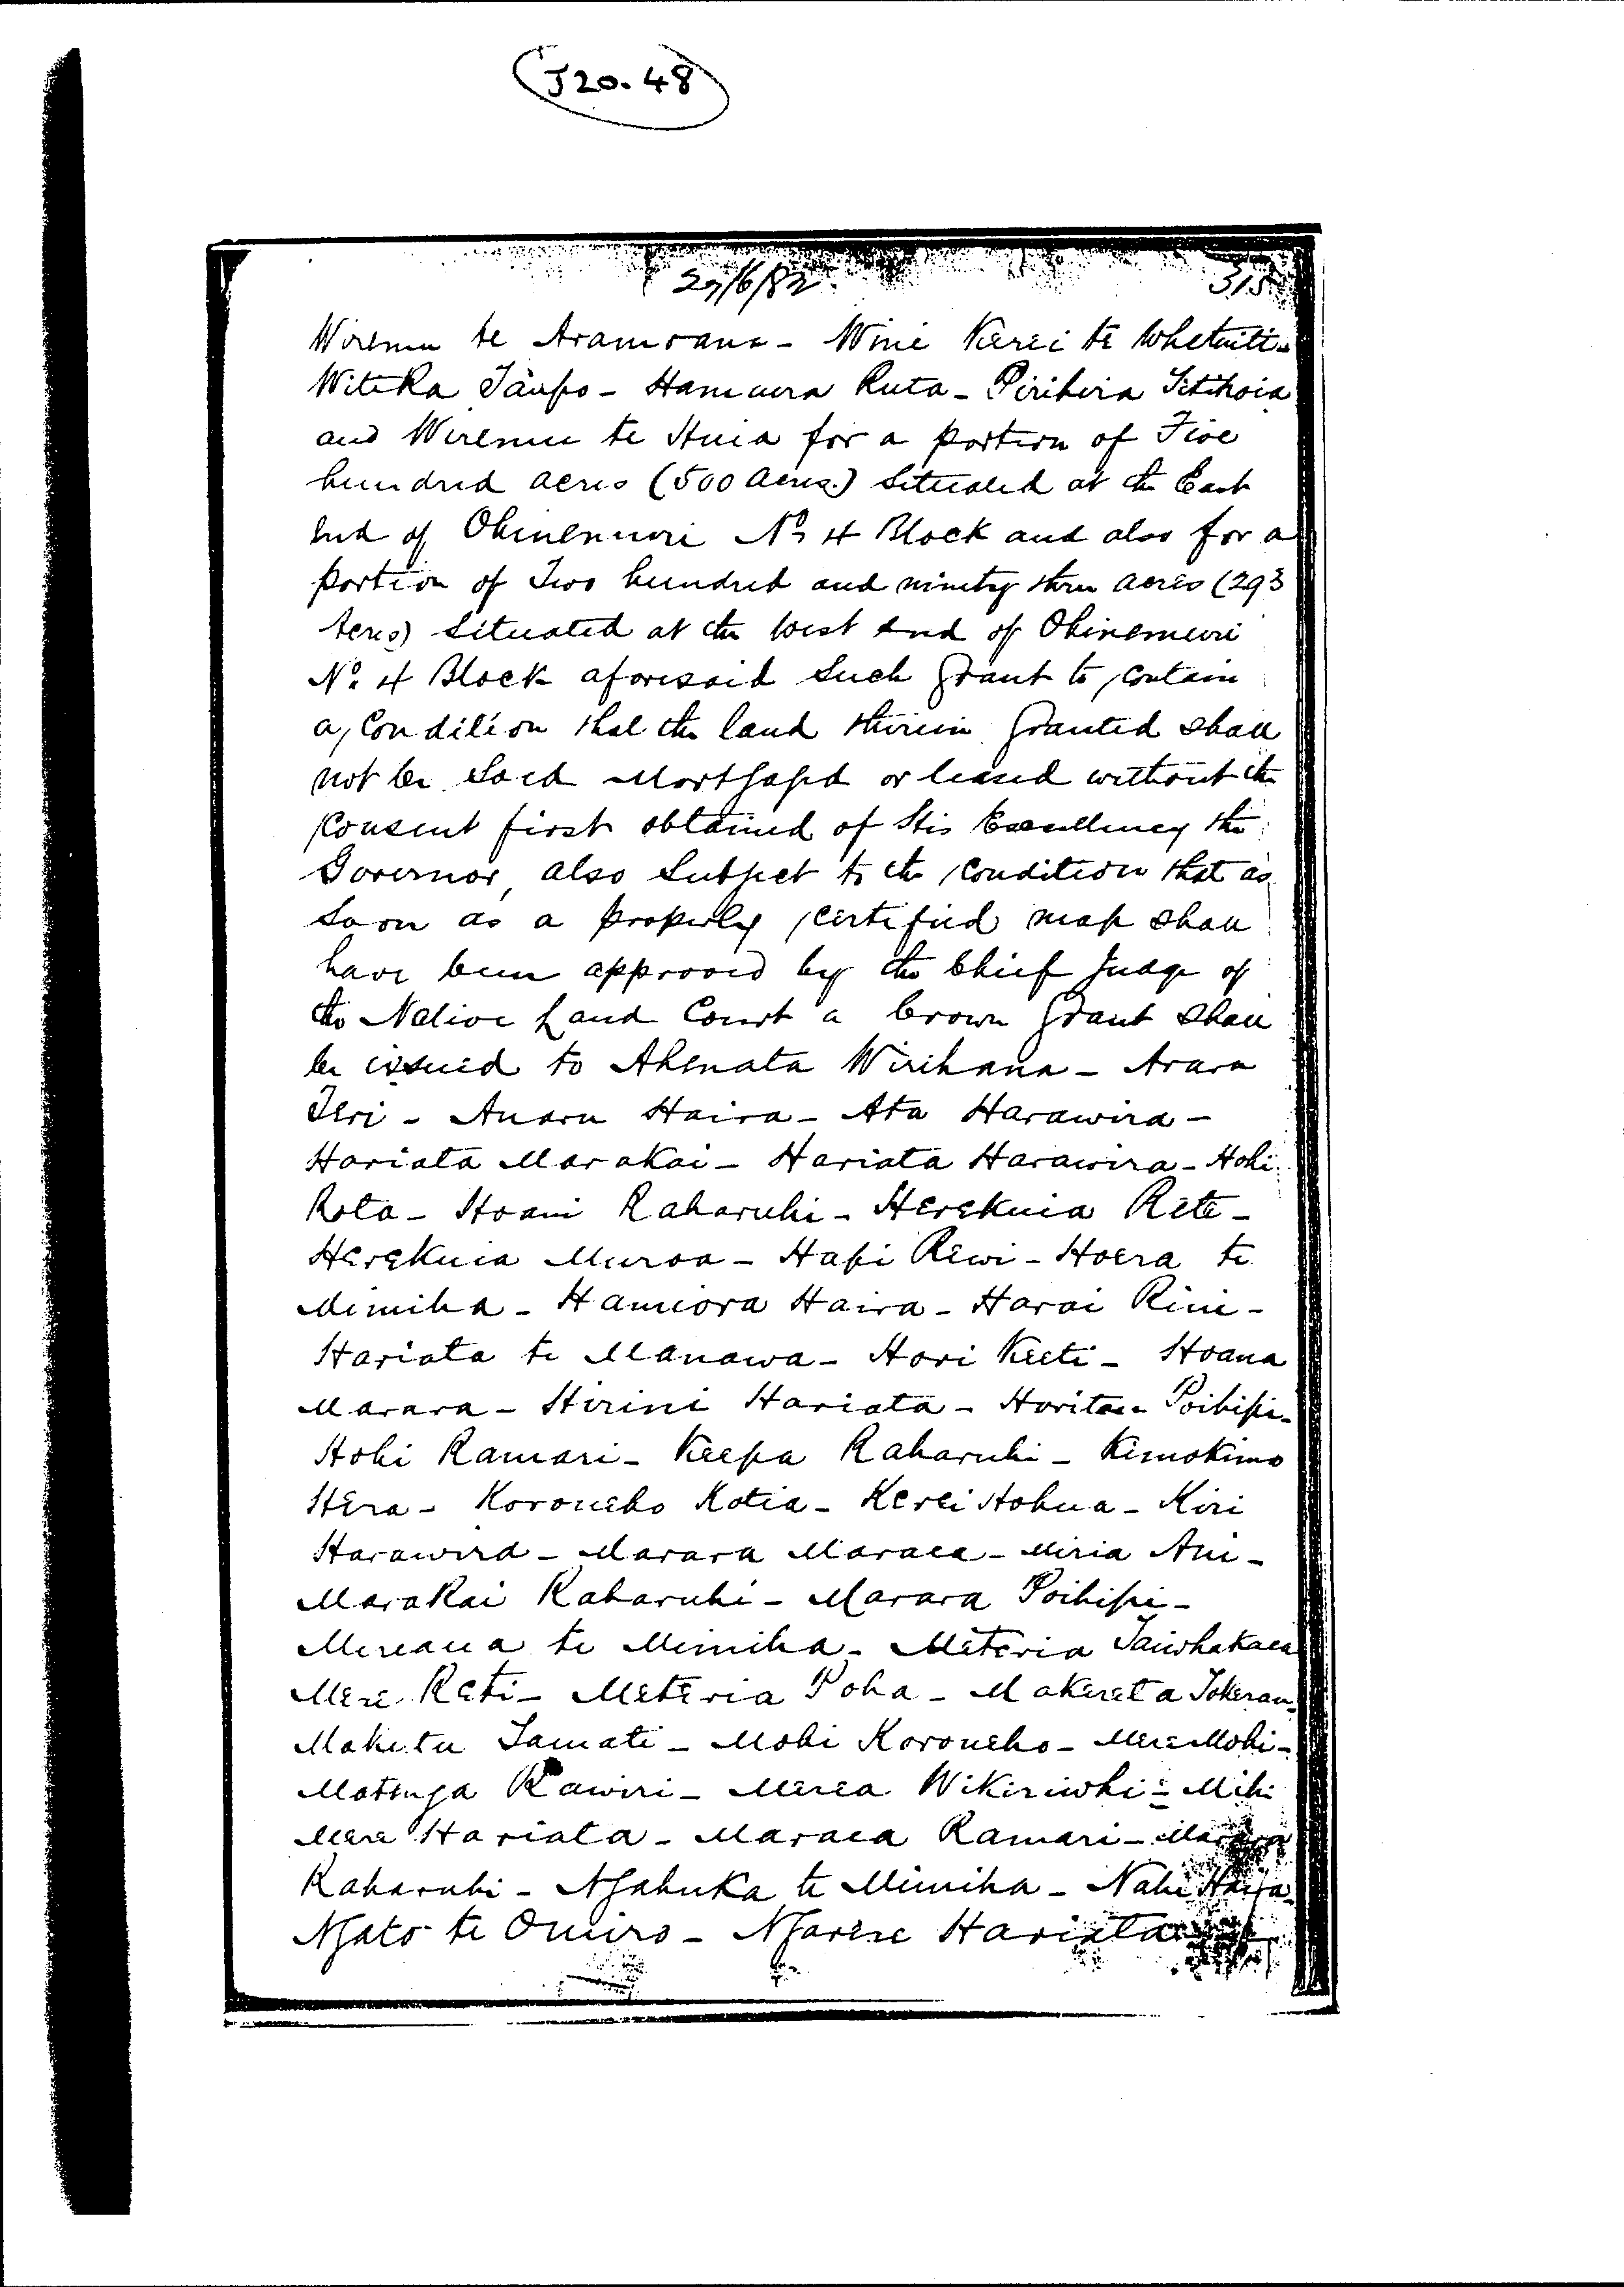 J20.48
29/6/82 315
Wiremu te Aramoana - Wini Kerei te Whetuiti -
Witeka Taupo - Hamuera Ruta - Pirihira Titihoia
and Wiremu te Huia for a portion of Five
hundred acres (500 Acres.) Situated at the East
End of Ohinemuri No 4 Block and also for a
portion of Two hundred and ninety three acres (293
Acres) Situated at the West End of Ohinemuri
No. 4 Block aforesaid Such Grant to contain
a Condition that the land therein Granted shall
not be Sold Mortgaged or leased without the
Consent first obtained of His Excellency the
Governor, also Subject to the Condition that as
Soon as a properly certified map shall
have been approved by the Chief Judge of
the Native Land Court a Crown Grant shall
be issued to Ahenata Wirihana - Arara
Teri - Anaru Haira - Ata Harawira -
Hariata Marakai - Hariata Harawira - Hohi
Rota - Hoani Raharuhi - Herekuia Rete -
Herekuia Muroa - Hapi Rewi - Hoera te
Mimiha - Hamiora Haira - Harai Rini -
Hariata te Manawa - Hori Keeti - Hoana
Marara - Hirini Hariata - Horitau - Poihipi -
Hohi Ramari - Keepa Raharuhi - Kimokimo
Hera - Koroneho Kotia - Kerei Hohua - Kiri
Harawira - Marara Maraea - Miria Ani -
Marakai Raharuhi - Marara Poihipi -
Mereana te Mimiha - Meteria Taiwhakaea
Mere Reti - Meteria Poha - Makereta Tokerau -
Maketu Tamati - Mohi Koroneho - Mere Mohi -
Matenga Rawiri - Merea Wikiriwhi - Mihi
Mere Hariata - Maraea Ramari - Marara
Raharuhi - Ngahuka te Mimiha - Nahi Haira
Ngato te Omiro - Ngarere Hariata